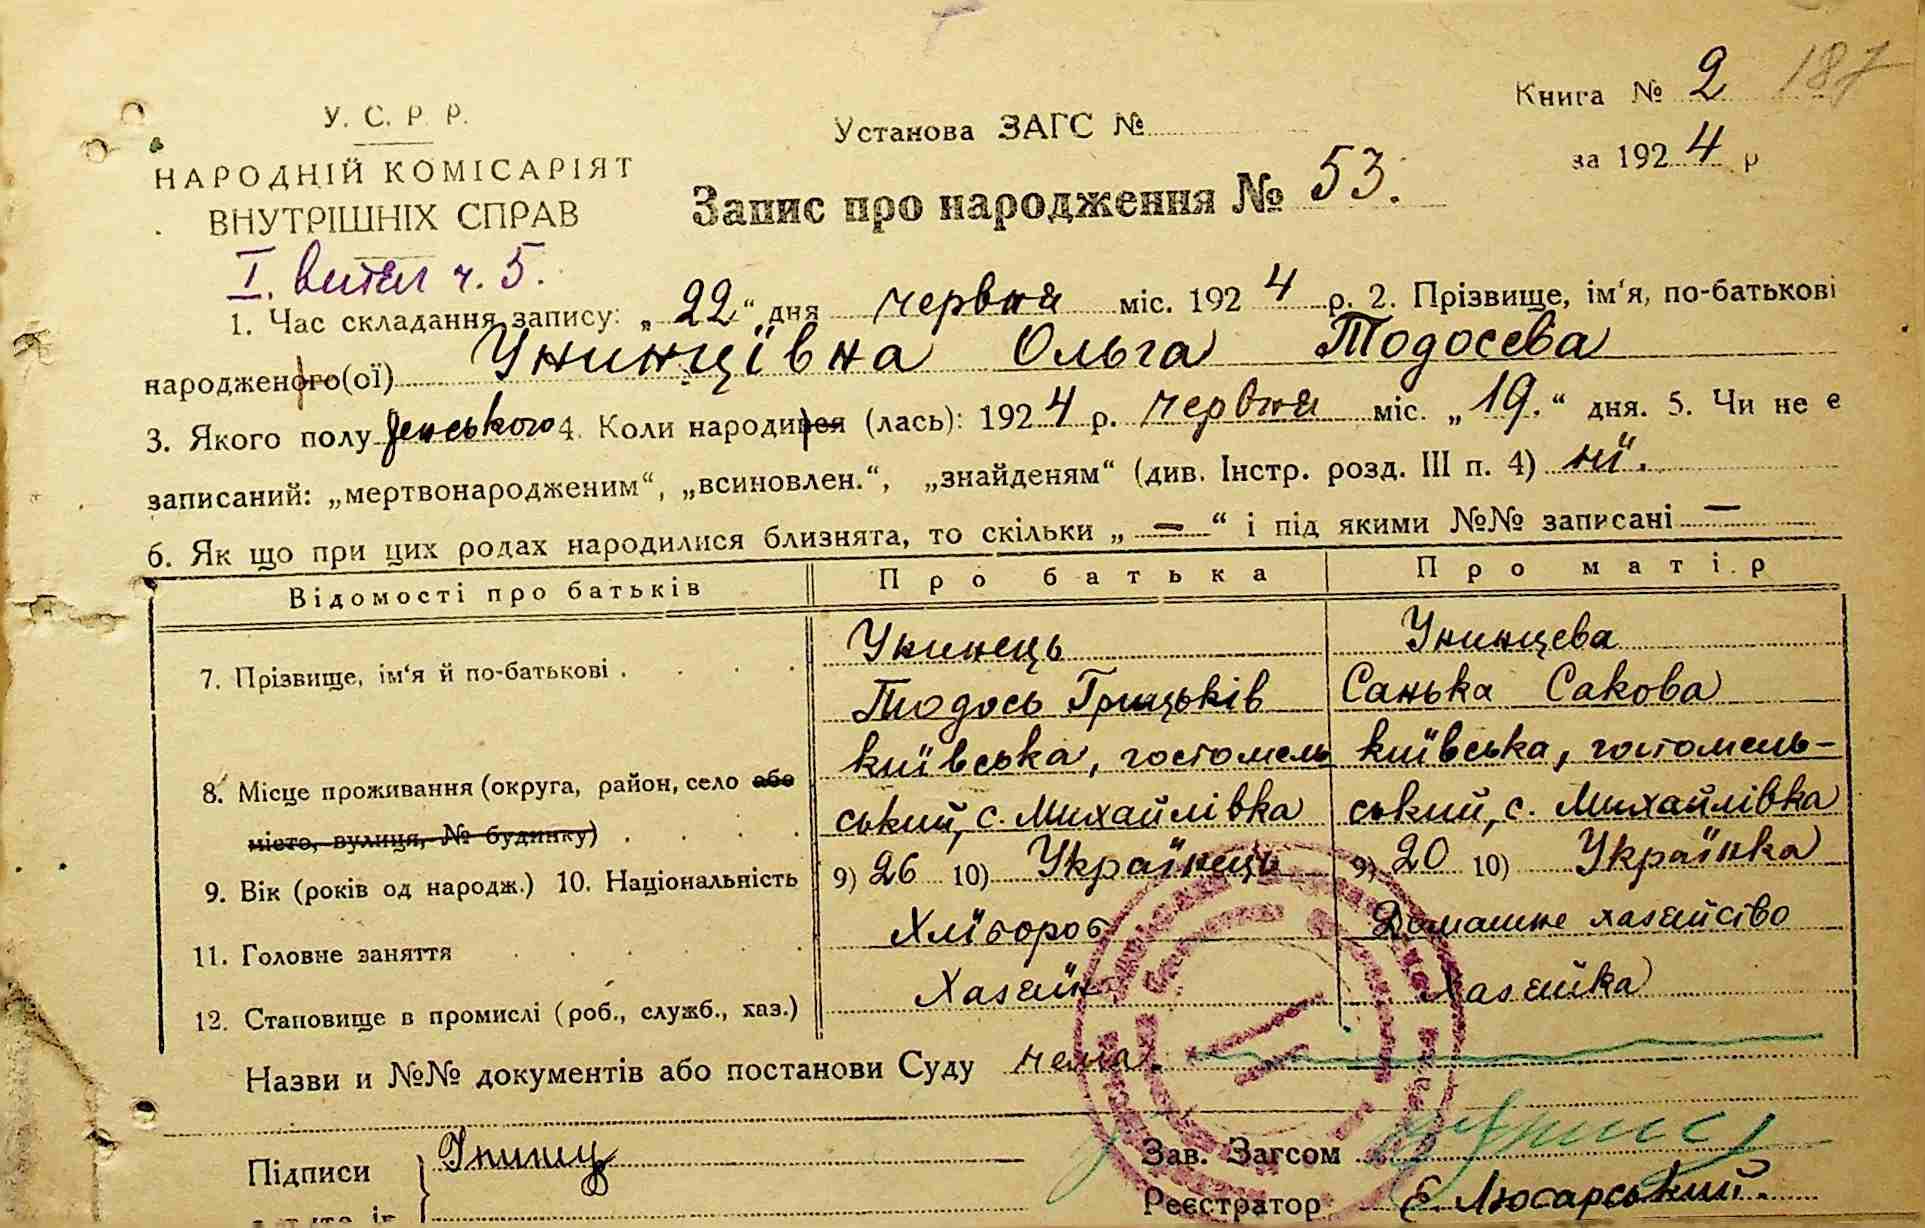 Книга № 2 187
У. С. Р. Р.
Установа ЗАГС №
за 1924 р
НАРОДНІЙ КОМІСАРІЯТ
ВНУТРІШНІХ СПРАВ
Запис про народження № 53.
І. витяг ч. 5.
1. Час складання запису: „22“ дня червня міс. 1924 р. 2. Прізвище, ім‘я, по-батькові
народженого(ої) Унинцівна Ольга Тодосєва
3. Якого полу женського 4. Коли народився (лась): 1924 р. червня міс. „19.“ дня. 5. Чи не є
записаний: „мертвонародженим“, „всиновлен.“, „знайденям“ (див. Інстр. розд. III п. 4) нї.
6. Як що при цих родах народилися близнята, то скільки „—“ і під якими №№ записані —
Відомості про батьків Про батька Про матір
7. Прізвище, ім‘я й по-батькові . . . . Унинець Унинцева
Тодось Грицьків Санька Сакова
8. Місце проживання (округа, район, село або київська, гостомель київська, гостомель-
місто, вулиця, № будинку) . . . . ський, с. Михайлівка ський, с. Михайлівка
9. Вік (років од народж.) 10. Національність 9) 26 10) Українець 9) 20 10) Українка
11. Головне заняття . . . . Хлїбороб Домашне хазяйство
12. Становище в промислі (роб., служб., хаз.) Хазяїн Хазяйка
Назви и №№ документів або постанови Суду нема.
Підписи } Унинц Зав. Загсом
Реєстратор Є. Люсарський.